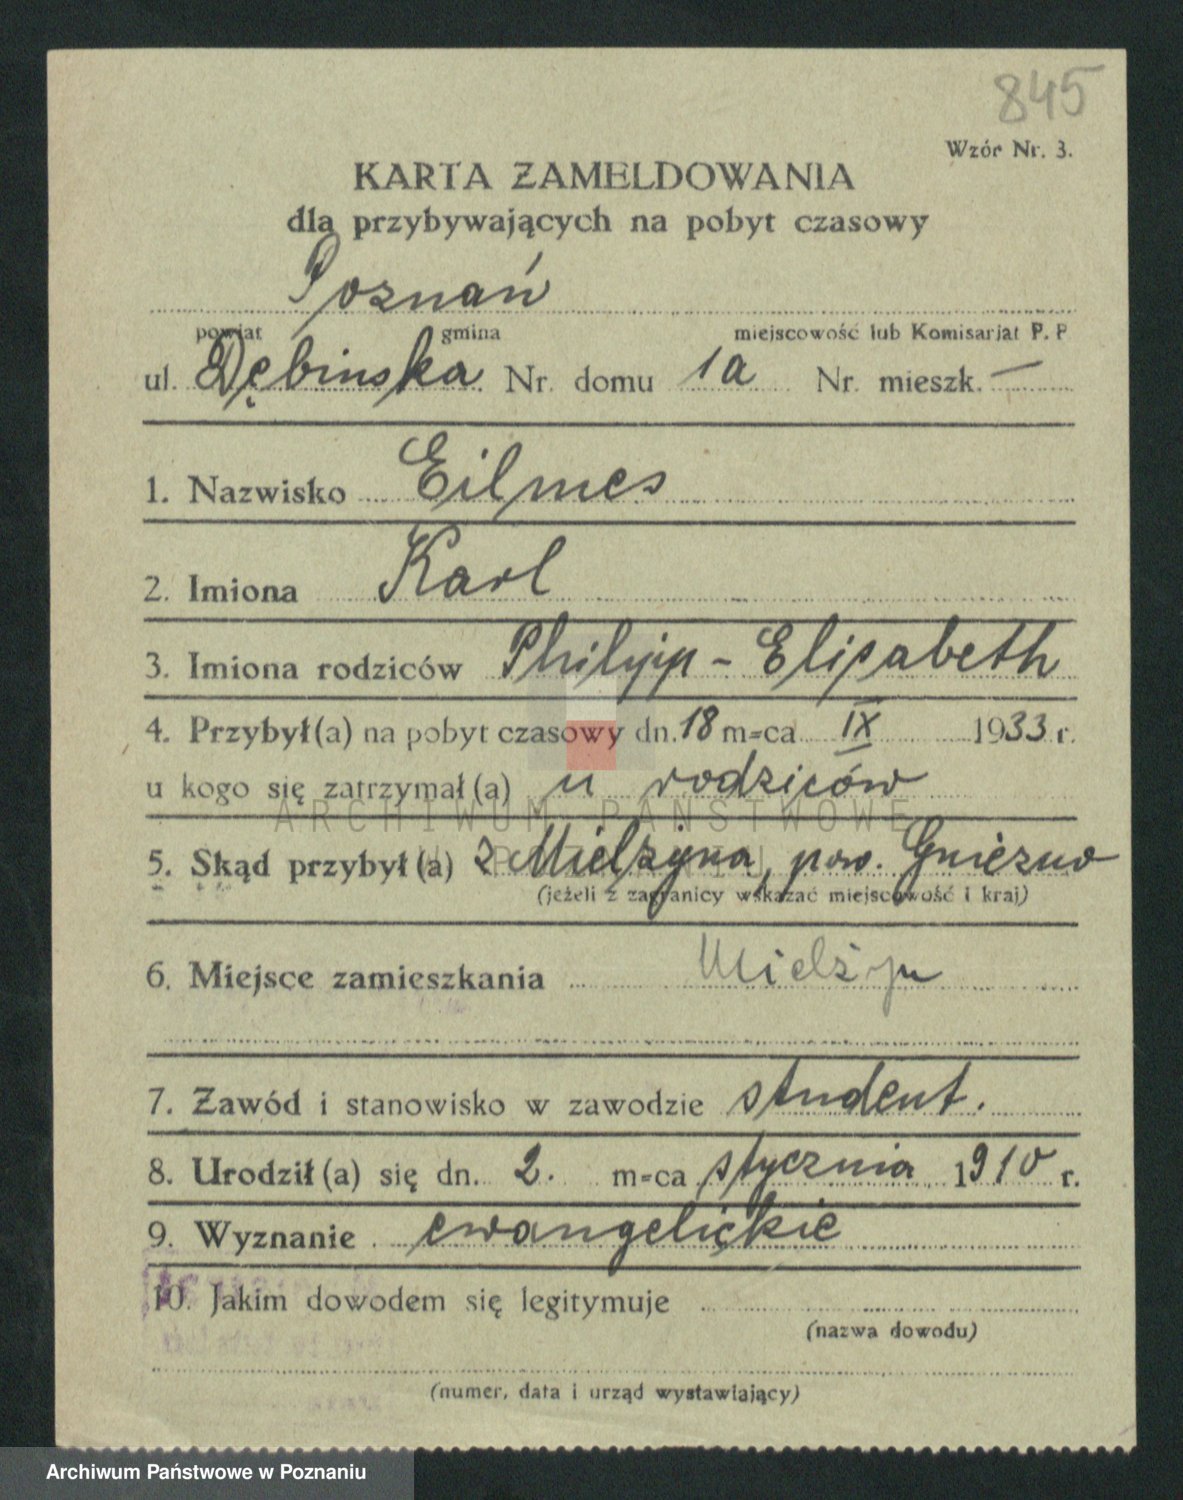 845
Wzór Nr. 3.
KARTA ZAMELDOWANIA
dla przybywających na pobyt czasowy
Poznań
powiat gmina miejscowość lub Komisarjat P. P
ul. Dębinska Nr. domu 1a Nr. mieszk. —
1. Nazwisko Eilmes
2. Imiona Karl
3. Imiona rodziców Philipp - Elisabeth
4. Przybył(a) na pobyt czasowy dn. 18 m-ca IX 1933 r.
u kogo się zatrzymał(a) u rodziców
ARCHIWUM PAŃSTWOWE
5. Skąd przybył(a) z Mielżyna, pow. Gniezno
(jeżeli z zagranicy wskazać miejscowość i kraj)
6. Miejsce zamieszkania Mielżyn
7. Zawód i stanowisko w zawodzie student.
8. Urodził(a) się dn. 2. m-ca stycznia 1910 r.
9. Wyznanie ewangelickie
10. Jakim dowodem się legitymuje
(nazwa dowodu)
(numer, data i urząd wystawiający)
Archiwum Państwowe w Poznaniu